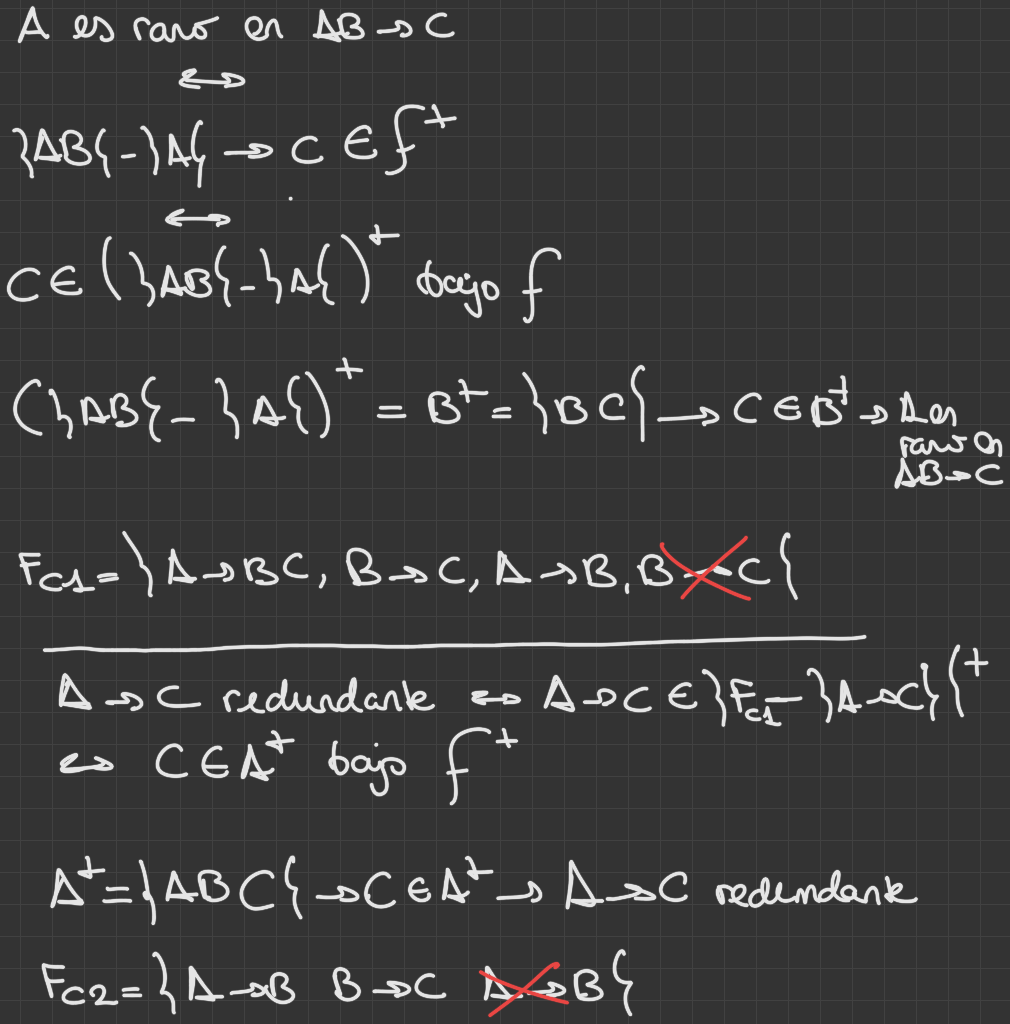 A es raro en AB→C
↔
}AB{-}A{ → C ∈ f⁺
↔
C ∈ (}AB{-}A{)⁺ bajo f
(}AB{-}A{)⁺ = B⁺ = }BC{ → C ∈ B⁺ → A es
raro en
AB→C
F_C1 = }A→BC, B→C, A→B, B→C{
A→C redundante ↔ A→C ∈ }F_C1 - }A→C}{⁺
↔ C ∈ A⁺ bajo f⁺
A⁺ = }ABC{ → C ∈ A⁺ → A→C redundante
F_C2 = }A→B B→C A→B{